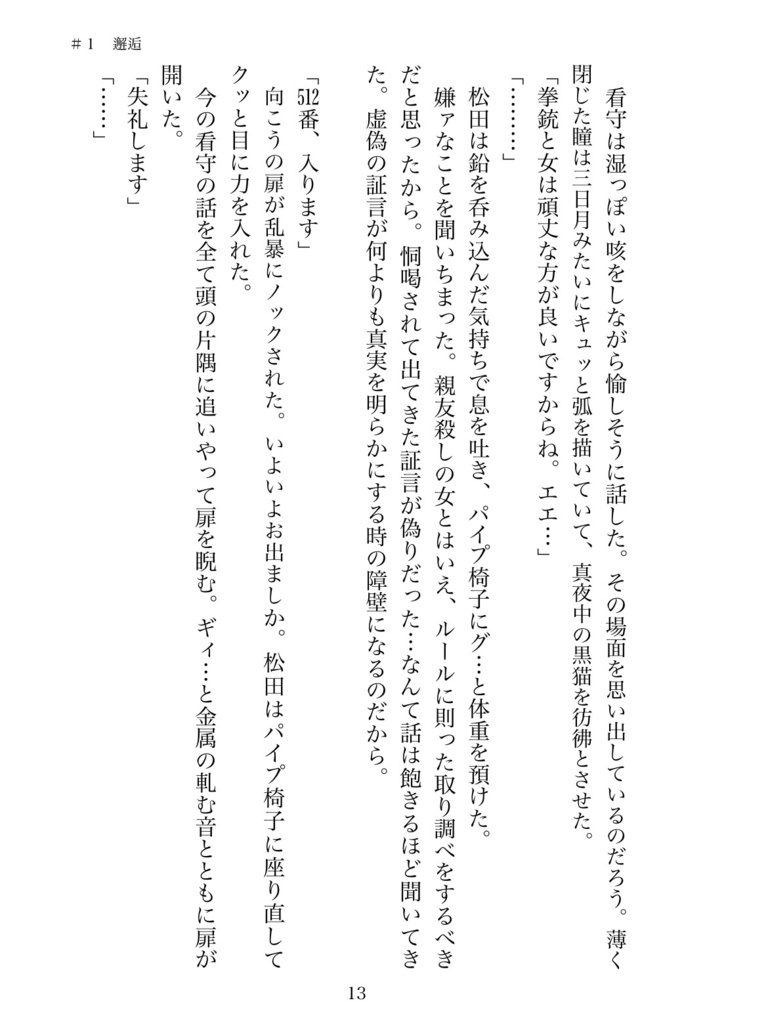 #1 邂逅
看守は湿っぽい咳をしながら愉しそうに話した。その場面を思い出しているのだろう。薄く
閉じた瞳は三日月みたいにキュッと弧を描いていて、真夜中の黒猫を彷彿とさせた。
「拳銃と女は頑丈な方が良いですからね。エエ…」
「………」
松田は鉛を呑み込んだ気持ちで息を吐き、パイプ椅子にグ…と体重を預けた。
嫌ァなことを聞いちまった。親友殺しの女とはいえ、ルールに則った取り調べをするべき
だと思ったから。恫喝されて出てきた証言が偽りだった…なんて話は飽きるほど聞いてき
た。虚偽の証言が何よりも真実を明らかにする時の障壁になるのだから。
「512番、入ります」
向こうの扉が乱暴にノックされた。いよいよお出ましか。松田はパイプ椅子に座り直して
クッと目に力を入れた。
今の看守の話を全て頭の片隅に追いやって扉を睨む。ギィ…と金属の軋む音とともに扉が
開いた。
「失礼します」
「……」
13